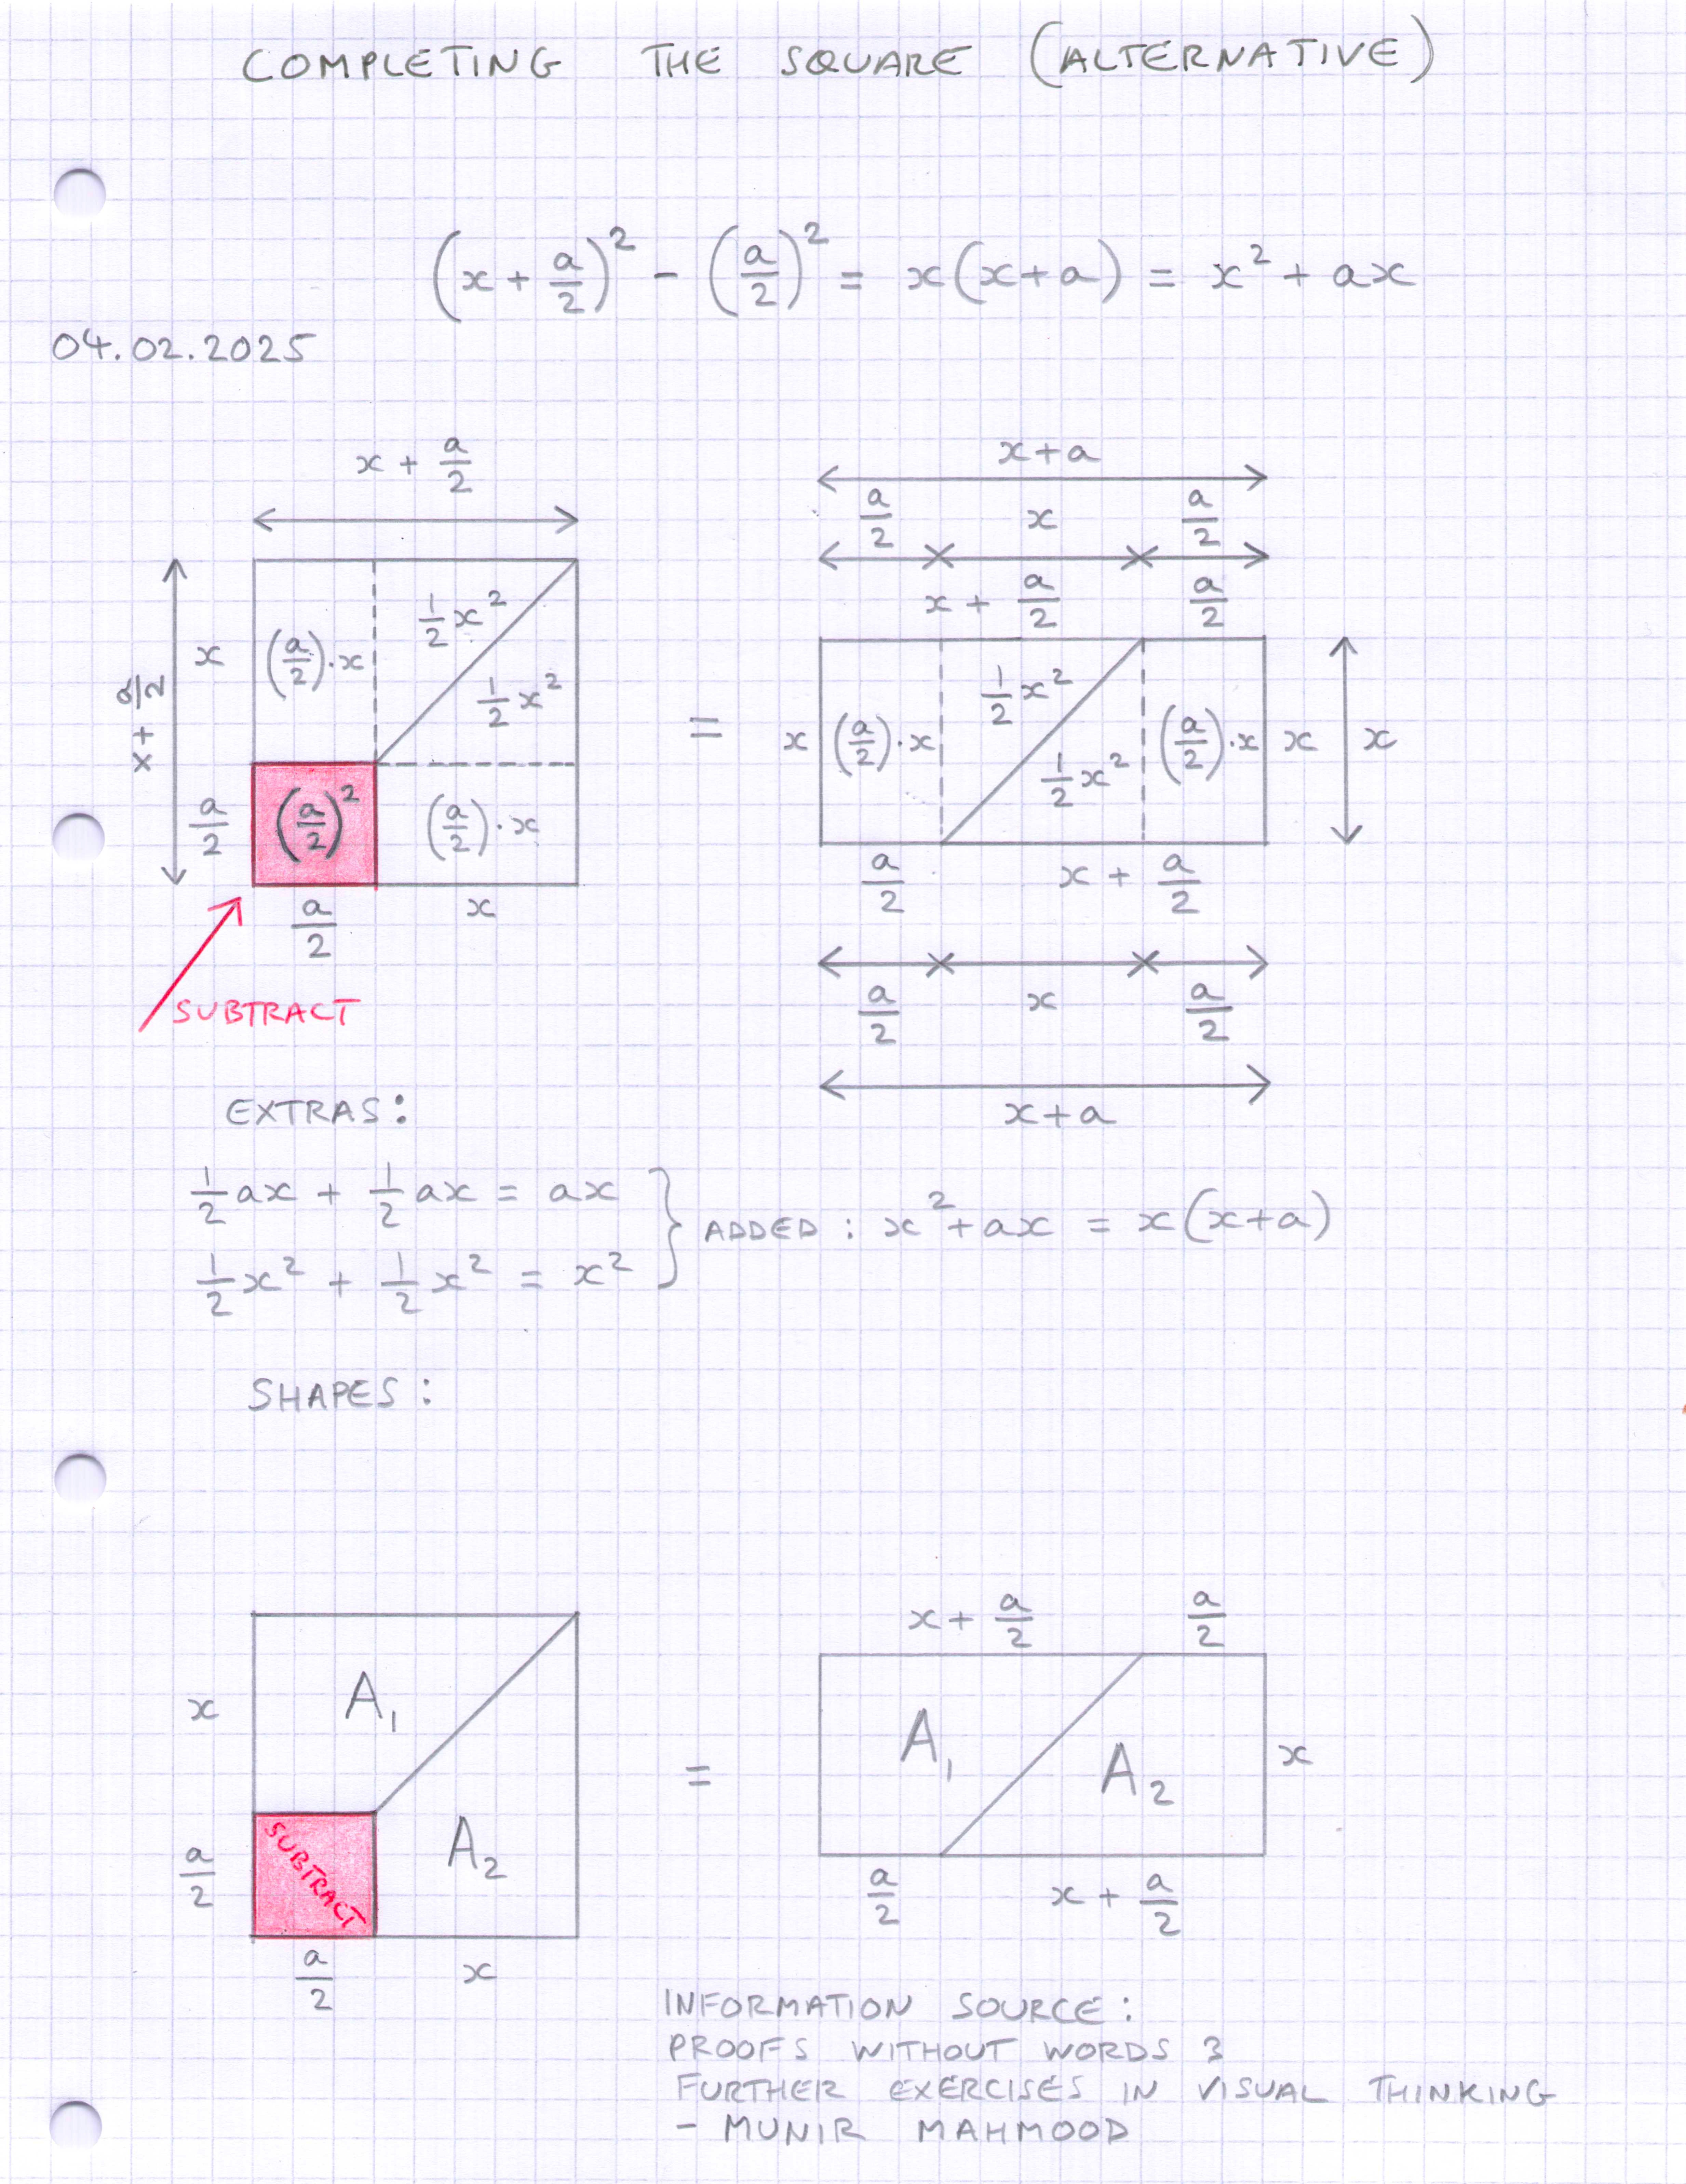 COMPLETING THE SQUARE (ALTERNATIVE)
(x + a/2)² - (a/2)² = x(x+a) = x² + ax
04.02.2025
x + a/2
x + a/2
x
(a/2)·x
1/2 x²
1/2 x²
a/2
(a/2)²
(a/2)·x
a/2
x
SUBTRACT
=
x+a
a/2 x a/2
x + a/2 a/2
x
(a/2)·x
1/2 x²
1/2 x²
(a/2)·x
x
x
a/2 x + a/2
a/2 x a/2
x+a
EXTRAS:
1/2 ax + 1/2 ax = ax
1/2 x² + 1/2 x² = x²
} ADDED: x² + ax = x(x+a)
SHAPES:
x
A₁
a/2
SUBTRACT
A₂
a/2 x
=
x + a/2 a/2
A₁
A₂
x
a/2 x + a/2
INFORMATION SOURCE:
PROOFS WITHOUT WORDS 3
FURTHER EXERCISES IN VISUAL THINKING
- MUNIR MAHMOOD